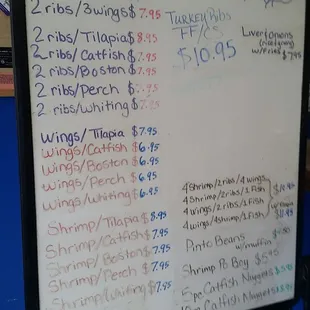 2 ribs/3 wings $7.95
2 ribs/Tilapia $8.95
2 ribs/Catfish $7.95
2 ribs/Boston $7.95
2 ribs/Perch $7.95
2 ribs/whiting $7.95
Wings/Tilapia $7.95
Wings/Catfish $6.95
Wings/Boston $6.95
Wings/Perch $6.95
Wings/whiting $6.95
Shrimp/Tilapia $8.95
Shrimp/Catfish $7.95
Shrimp/Boston $7.95
Shrimp/Perch $7.95
Shrimp/whiting $7.95
Turkey Ribs
FF/CS
$10.95
Liver/onions
w/Fries $7.95
4 Shrimp/2 ribs/4 wings
4 Shrimp/2 ribs/1 Fish
4 wings/2 ribs/1 Fish
4 wings/4 shrimp/1 Fish
Pinto Beans
w/muffin
Shrimp Po Boy $5.95
5 pc Catfish Nuggets
Catfish Nuggets